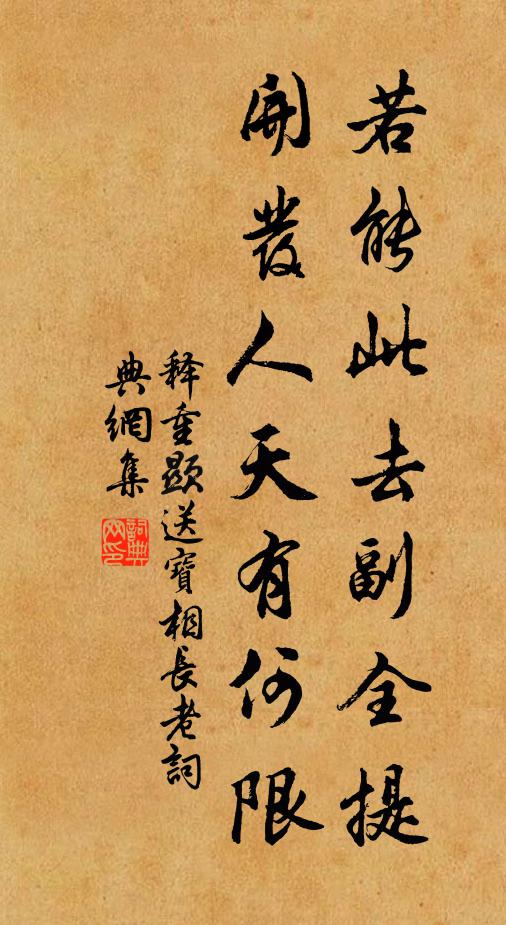 若能此去副全提
開發人天有何限
释重顯送寶相長老詞
典網集
詞典網印